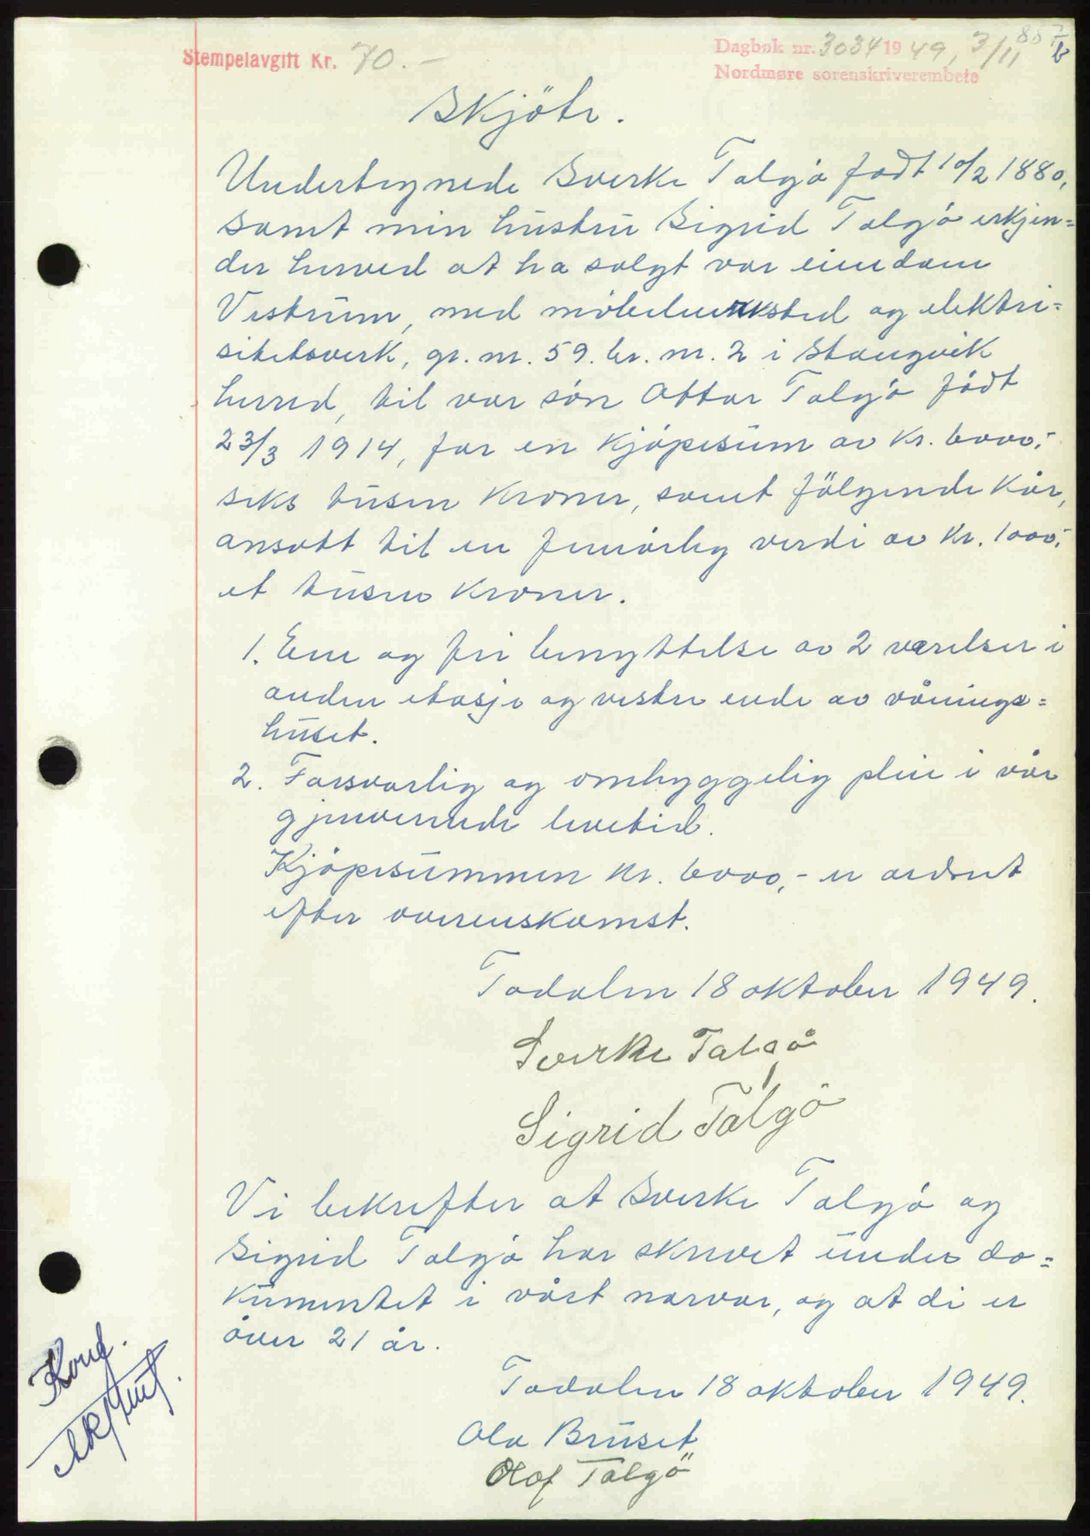 Stempelavgift Kr. 70.-
Dagbok nr. 3034 1949, 3/11
Nordmøre sorenskriverembete
Skjöte.
Undertegnede Sverke Talgö født 10/2 1880,
samt min hustru Sigrid Talgö erkjen=
der herved at ha solgt vor eiendom
Vestrum, med möbelverksted og elektri=
sitetsverk, gr. nr. 59. br. nr. 2 i Stangvik
herred, til vor sön Ottar Talgö födt
23/3 1914, for en kjöpesum av kr. 6000,-
seks tusen kroner, samt fölgende kår,
ansatt til en femårlig verdi av kr. 1000,-
et tusen kroner.
1. Ene og fri benyttelse av 2 værelser i
anden etasje og vestre ende av vånings=
huset.
2. Forsvarlig og omhyggelig pleie i vår
gjenværende levetid.
Kjöpesummen kr. 6000,- er ordnet
efter overenskomst.
Todalen 18 oktober 1949.
Sverke Talgö
Sigrid Talgö
Vi bekrefter at Sverke Talgö og
Sigrid Talgö har skrevet under do=
kumentet i vårt nærvær, og at di er
över 21 år.
Todalen 18 oktober 1949.
Ola Bruset
Olof Talgö
Konf.